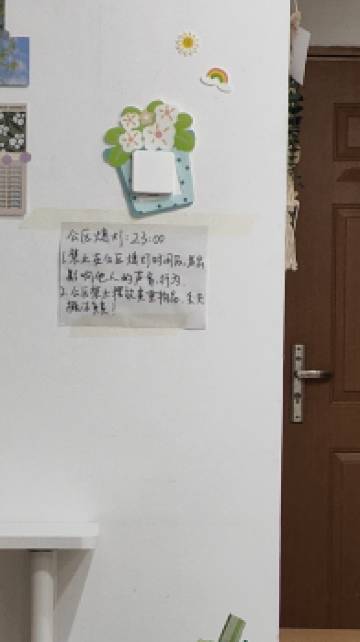 公区熄灯:23:00
1.禁止在公区熄灯时间段,发出
影响他人的声音,行为.
2.公区禁止摆放贵重物品,丢失
概不负责!